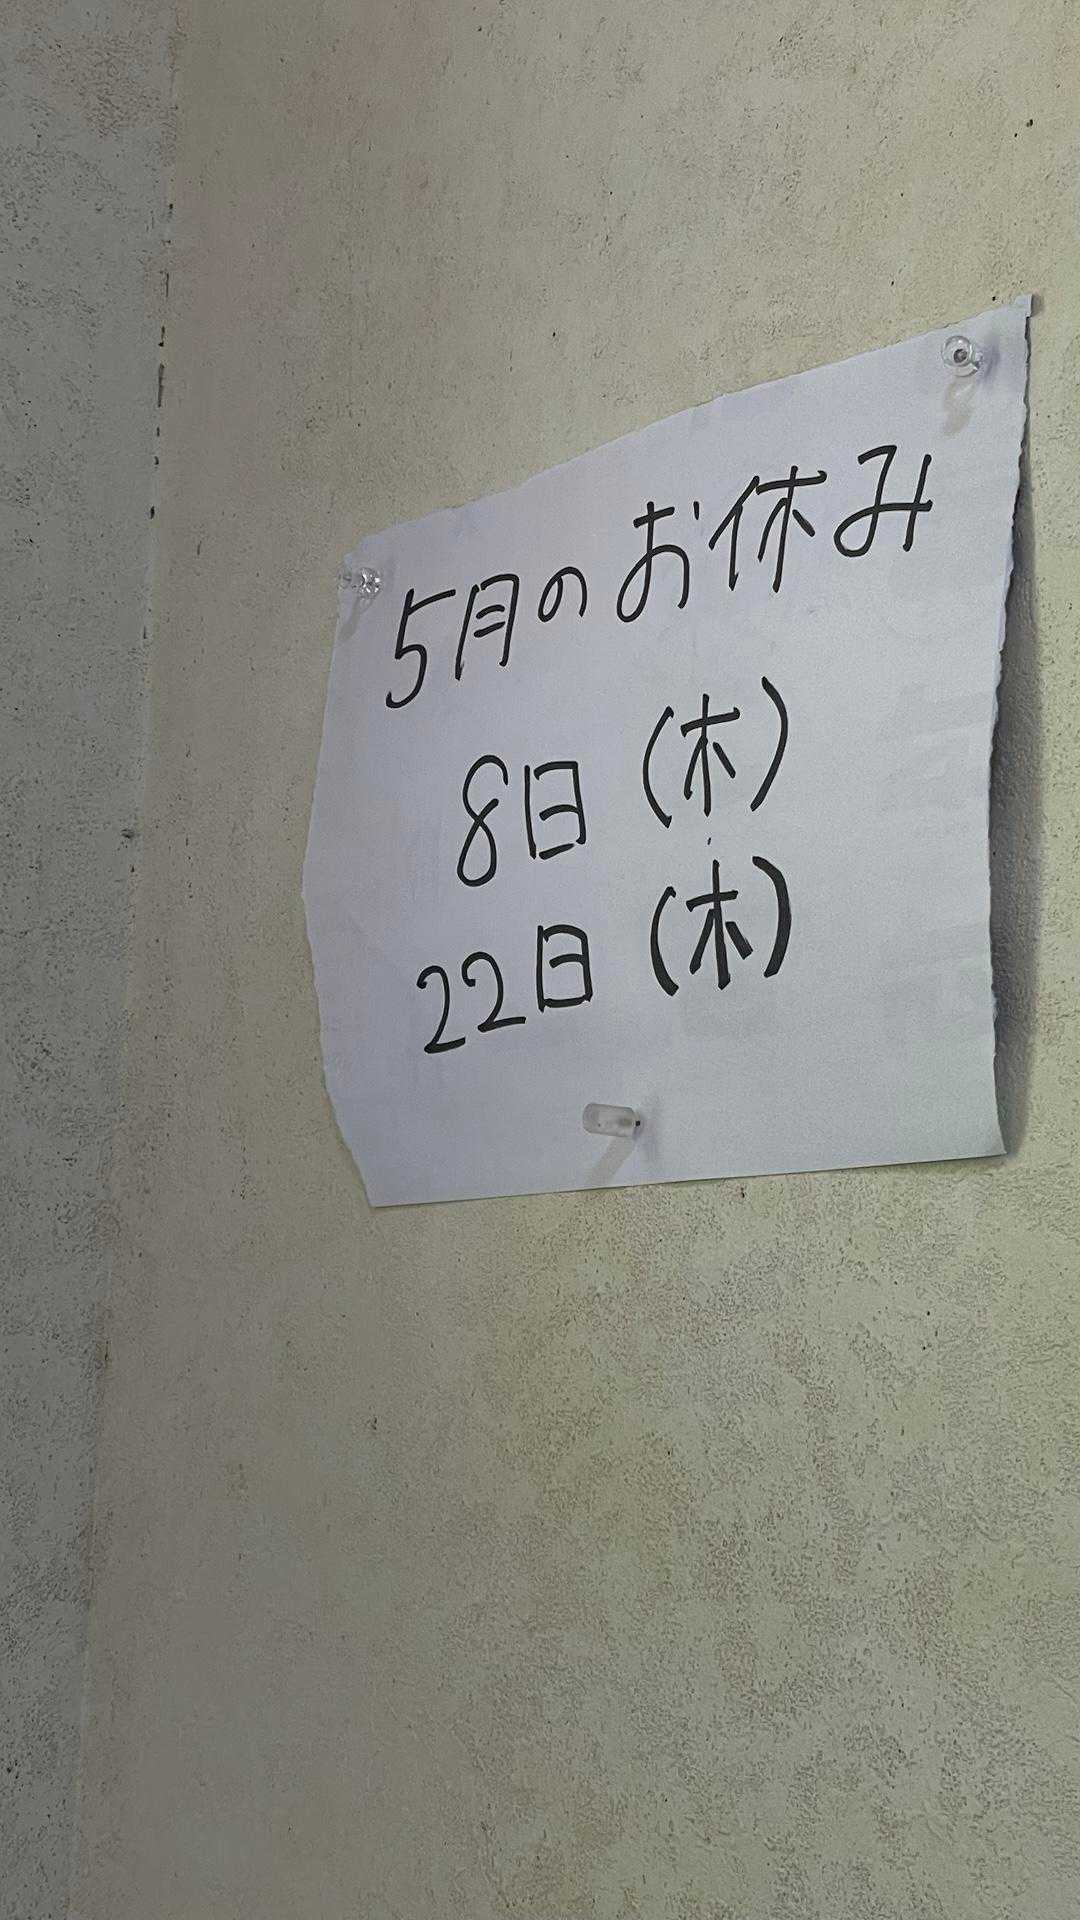 5月のお休み
8日(木)
22日(木)